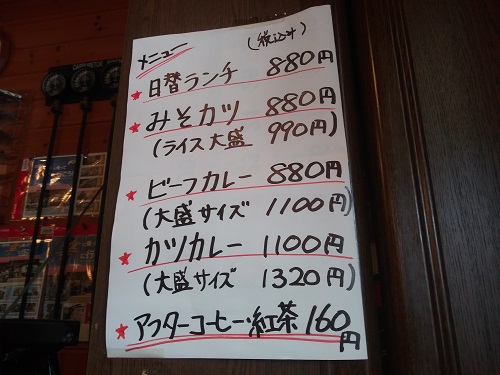 メニュー (税込み)
★日替ランチ 880円
★みそカツ 880円
(ライス大盛 990円)
★ビーフカレー 880円
(大盛サイズ 1100円)
★カツカレー 1100円
(大盛サイズ 1320円)
★アフターコーヒー・紅茶 160円